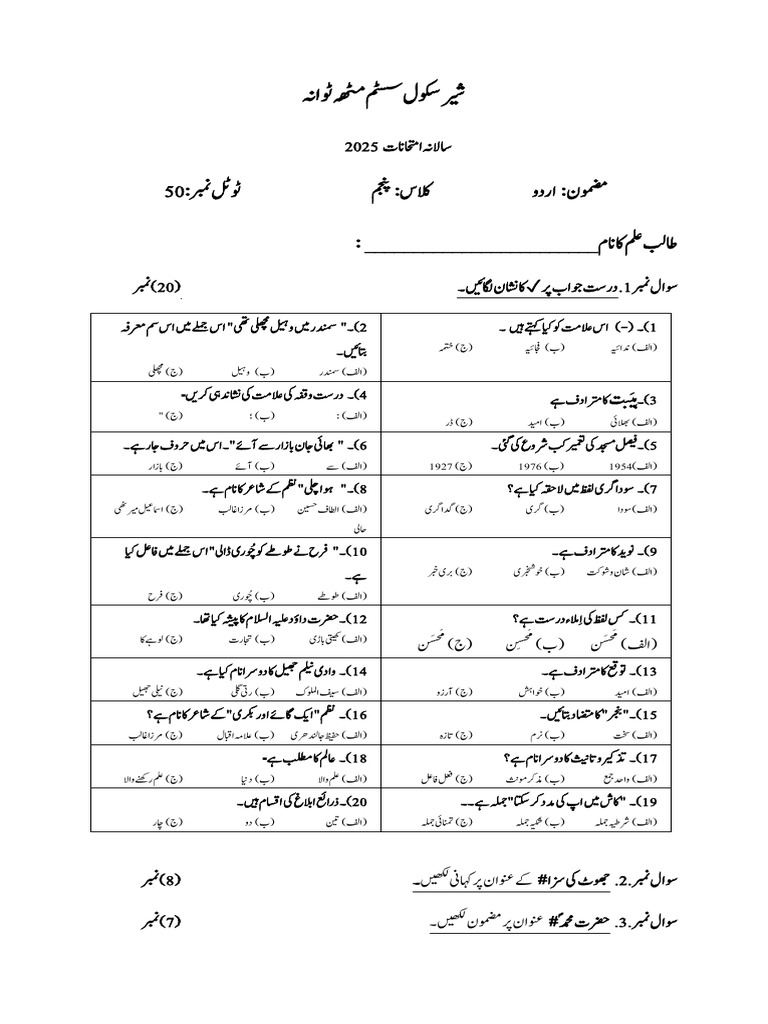 شیر سکول سسٹم مٹھہ ٹوانہ
سالانہ امتحانات 2025
مضمون: اردو کلاس: پنجم ٹوٹل نمبر:50
طالب علم کا نام__________________________ :
سوال نمبر1.درست جواب پر ✓ کا نشان لگائیں۔ (20)نمبر
1)۔ (–) اس علامت کو کیا کہتے ہیں ۔
(الف) ندائیہ (ب) فجائیہ (ج) ختمہ
2)۔" سمندر میں وہیل مچھلی تھی" اس جملے میں اس سم معرفہ
بتائیں۔
(الف) سمندر (ب) وہیل (ج) مچھلی
3)۔ہیبت کا مترادف ہے
(الف) بھلائی (ب) امید (ج) ڈر
4)۔ درست وقفہ کی علامت کی نشاندہی کریں-
(الف) : (ب) ؛ (ج) "
5)۔فیصل مسجد کی تعمیر کب شروع کی گئی۔
(الف)1954 (ب) 1976 (ج) 1927
6)۔ " بھائی جان بازار سے آئے"۔اس میں حروف جار ہے۔
(الف) سے (ب) آئے (ج) بازار
7)۔ سوداگری لفظ میں لاحقہ کیا ہے؟
(الف)سودا (ب) گری (ج) گداگری
8)۔" ہوا چلی" نظم کے شاعر کا نام ہے۔
(الف) الطاف حسین (ب) مرزا غالب (ج) اسماعیل میرٹھی
حالی
9)۔ نوید کا مترادف ہے۔
(الف) شان و شوکت (ب) خوشخبری (ج) بری خبر
10)۔" فرح نے طوطے کو چُوری ڈالی" اس جملے میں فاعل کیا
ہے۔
(الف) طوطے (ب) چُوری (ج) فرح
11)۔ کس لفظ کی اِملاء درست ہے؟
(الف) مَحَسَن (ب) مَحَسِن (ج) مَحُسَن
12)۔ حضرت داؤد علیہ السلام کا پیشہ کیا تھا۔
(الف) کھیتی باڑی (ب) تجارت (ج) لوہے کا
13)۔ توقع کا مترادف ہے۔
(الف) امید (ب) خواہش (ج) آرزو
14)۔ وادی نیلم جھیل کا دوسرا نام کیا ہے۔
(الف) سیف الملوک (ب) رتی گلی (ج) نیلی جھیل
15)۔" بنجر" کا متضاد بتائیں۔
(الف) سخت (ب) نرم (ج) تازہ
16)۔ نظم" ایک گائے اور بکری" کے شاعر کا نام ہے؟
(الف) حفیظ جالندھری (ب) علامہ اقبال (ج) مرزا غالب
17)۔ تذکیر و تانیث کا دوسرا نام ہے؟
(الف) واحد جمع (ب) مذکر مونث (ج) فعل فاعل
18)۔ عالم کا مطلب ہے-
(الف) علم والا (ب) دنیا (ج) علم رکھنے والا
19)۔ "کاش میں اپ کی مدد کر سکتا" جملہ ہے۔۔
(الف) شرطیہ جملہ (ب) شکیہ جملہ (ج) تمنائی جملہ
20)۔ذرائع ابلاغ کی اقسام ہیں۔
(الف) تین (ب) دو (ج) چار
سوال نمبر.2. جھوٹ کی سزا# کے عنوان پر کہانی لکھیں۔ (8)نمبر
سوال نمبر.3. حضرت محمدؐ# عنوان پر مضمون لکھیں۔ (7)نمبر